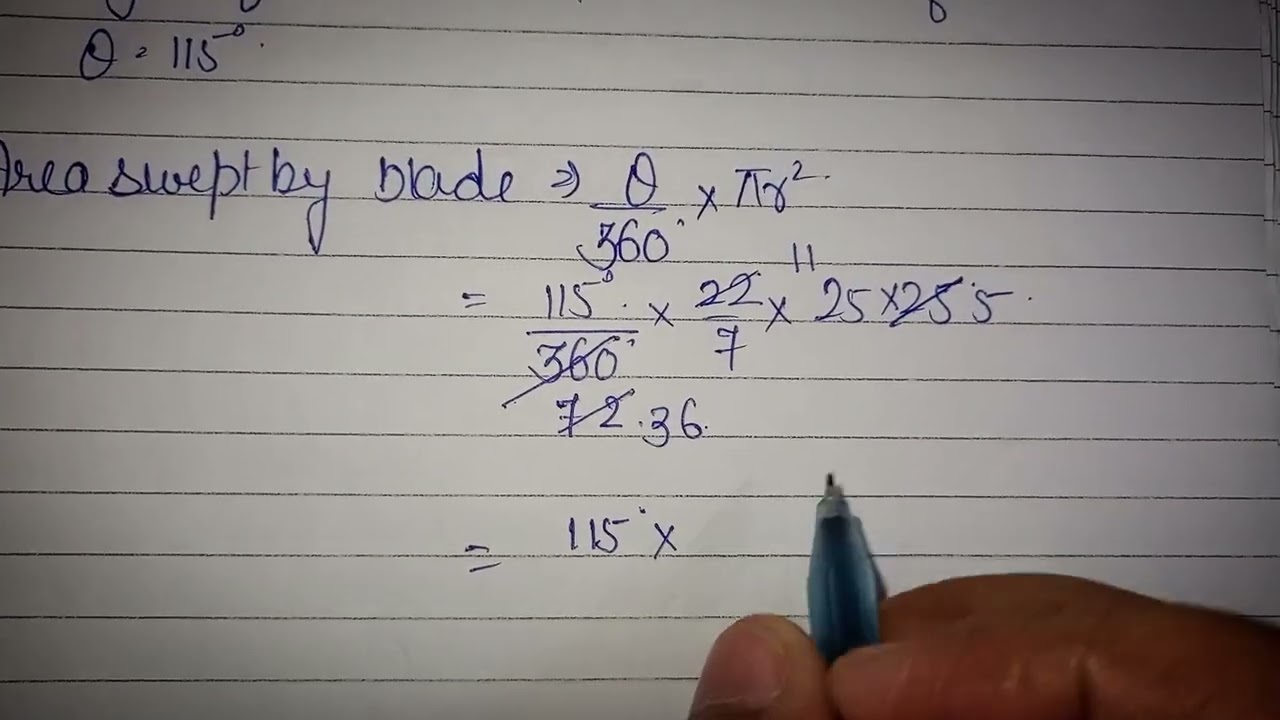 θ = 115°.
Area swept by blade ⇒ θ/360° × πr².
11
= 115°/360° × 22/7 × 25 × 25 5.
72.36.
= 115° ×